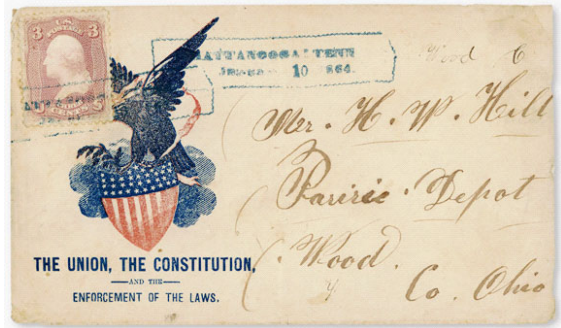 U.S. POSTAGE
3 3
CHATTANOOGA, TENN
10 864.
Wood C
Mr. H. W. Hill
Paririe Depot
Wood.
Co. Ohio
THE UNION, THE CONSTITUTION,
AND THE
ENFORCEMENT OF THE LAWS.